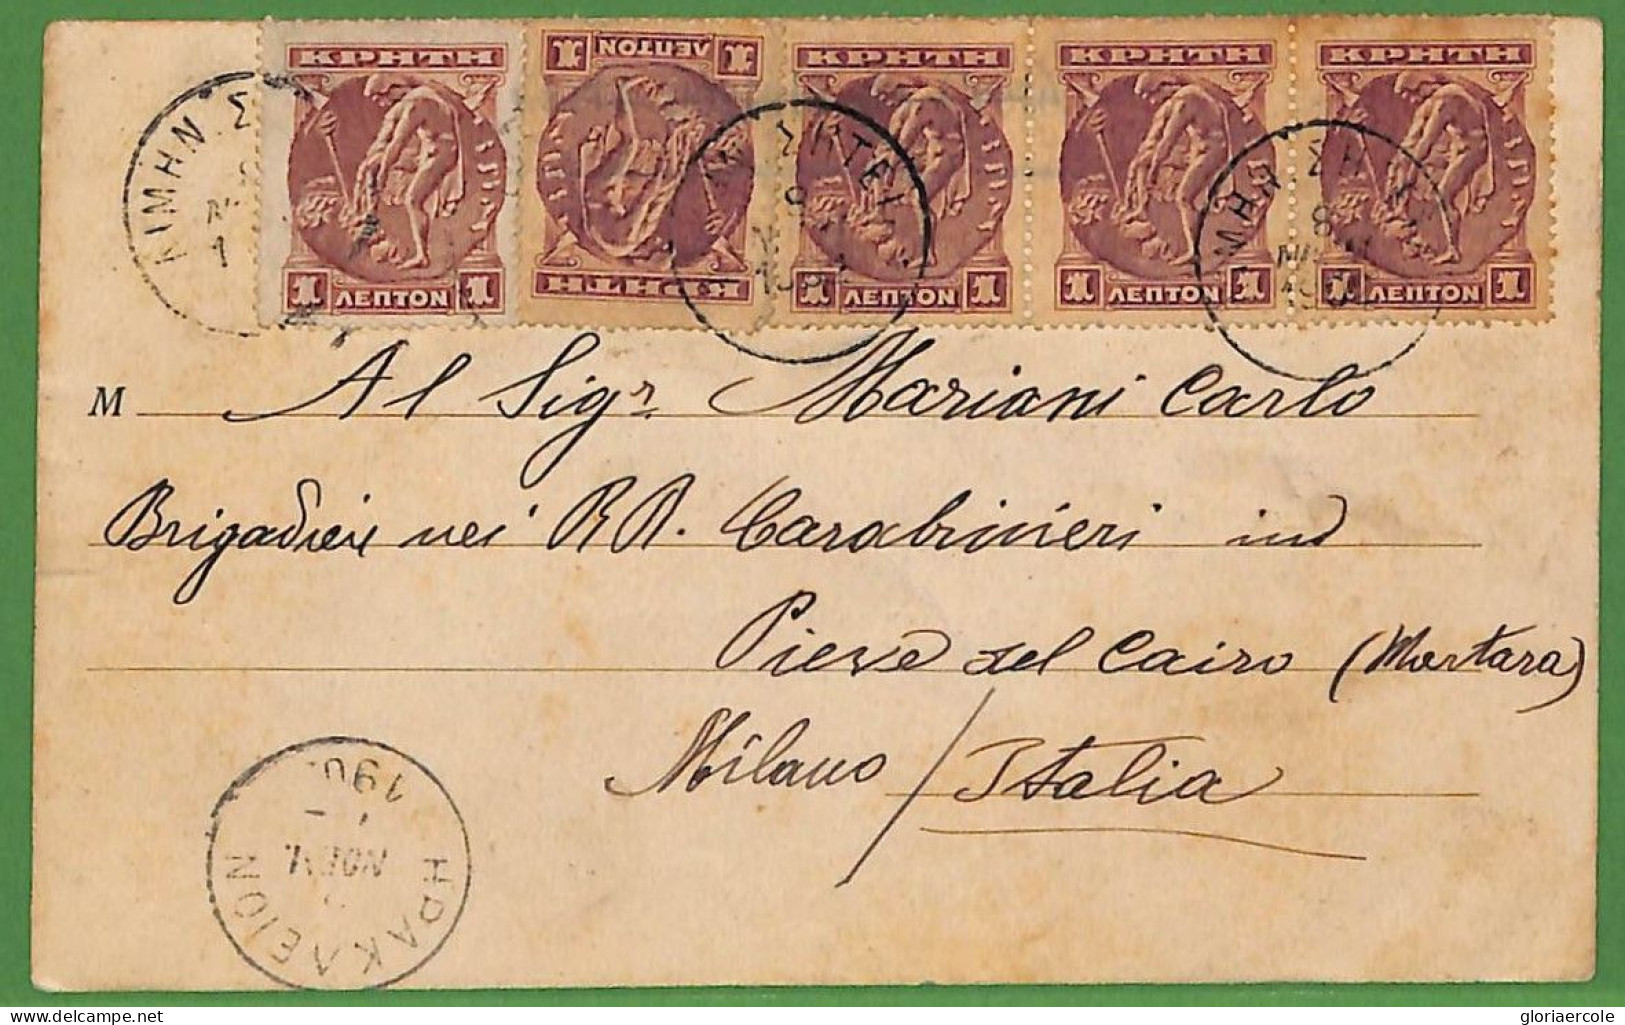 ΚΡΗΤΗ ΛΕΠΤΟΝ ΚΡΗΤΗ ΚΡΗΤΗ ΚΡΗΤΗ
1 ΛΕΠΤΟΝ 1 ΚΡΗΤΗ 1 ΛΕΠΤΟΝ 1 1 ΛΕΠΤΟΝ 1 1 ΛΕΠΤΟΝ 1
ΛΙΜΗΝ Σ
M Al Sigr Mariani Carlo
Brigadiere nei RR. Carabinieri in
Pieve del Cairo (Mortara)
Milano / Italia
ΗΡΑΚΛΕΙΟΝ
gloriaercole